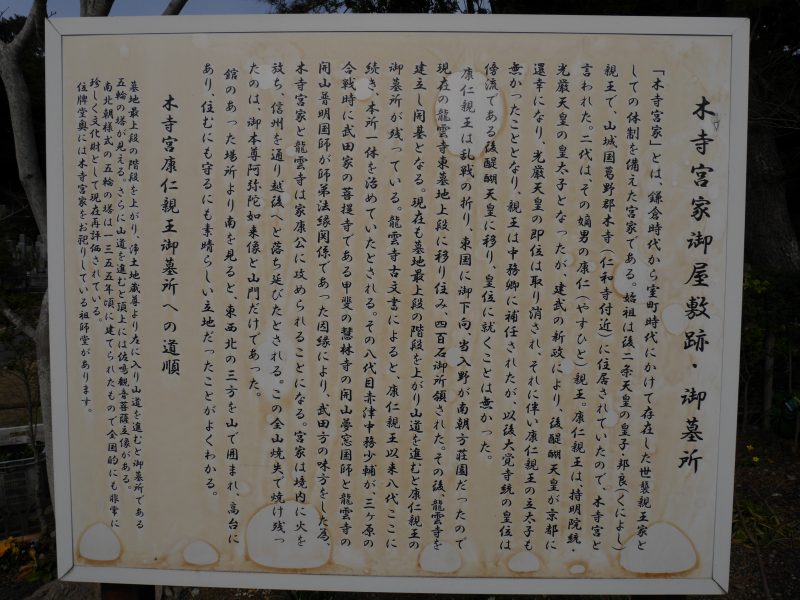 木寺宮家御屋敷跡・御墓所
「木寺宮家」とは、鎌倉時代から室町時代にかけて存在した世襲親王家と
しての体制を備えた宮家である。始祖は後二条天皇の皇子・邦良（くによし）
親王で、山城国葛野郡木寺（仁和寺付近）に住居されていたので、木寺宮と
言われた。二代は、その嫡男の康仁（やすひと）親王。康仁親王は、持明院統・
光厳天皇の皇太子となったが、建武の新政により、後醍醐天皇が京都に
還幸になり、光厳天皇の即位は取り消され、それに伴い康仁親王の立太子も
無かったこととなり、親王は中務卿に補任されたが、以後大覚寺統の皇位は
傍流である後醍醐天皇に移り、皇位に就くことは無かった。
康仁親王は乱戦の折り、東国に御下向、当入野が南朝方荘園だったので
現在の龍雲寺東墓地上段に移り住み、四百石御所領された。その後、龍雲寺を
建立し開基となる。現在も墓地最上段の階段を上がり山道を進むと康仁親王の
御墓所が残っている。龍雲寺古文書によると、康仁親王以来八代、ここに
続き、本所一体を治めていたとされる。その八代目赤津中務少輔が、三ヶ原の
合戦時に武田家の菩提寺である甲斐の慧林寺の開山夢窓国師と龍雲寺の
開山普明国師が師弟法縁関係であった因縁により、武田方の味方をした為、
木寺宮家と龍雲寺は家康公に攻められることになる。宮家は境内に火を
放ち、信州を通り越後へと落ち延びたとされる。この全山焼失で焼け残っ
たのは、御本尊阿弥陀如来像と山門だけであった。
館のあった場所より南を見ると、東西北の三方を山で囲まれ、高台に
あり、住むにも守るにも素晴らしい立地だったことがよくわかる。
木寺宮康仁親王御墓所への道順
墓地最上段の階段を上がり、浄土地蔵尊より左に入り山道を進むと御墓所である
五輪の塔が見える。さらに山道を進むと頂上には佐鳴観音菩薩立像がある。
南北朝様式の五輪の塔は一三五五年頃に建てられたもので全国的にも非常に
珍しく文化財として現在再評価されている。
位牌堂奥には木寺宮家をお祀りしている祖師堂があります。